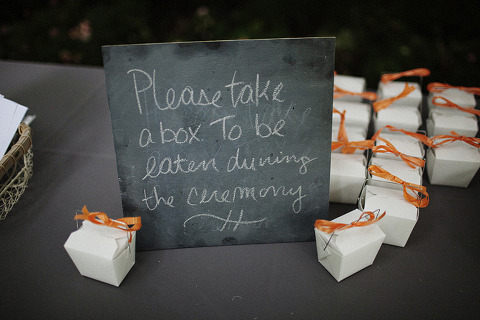 Please take
a box To be
eaten during
the ceremony